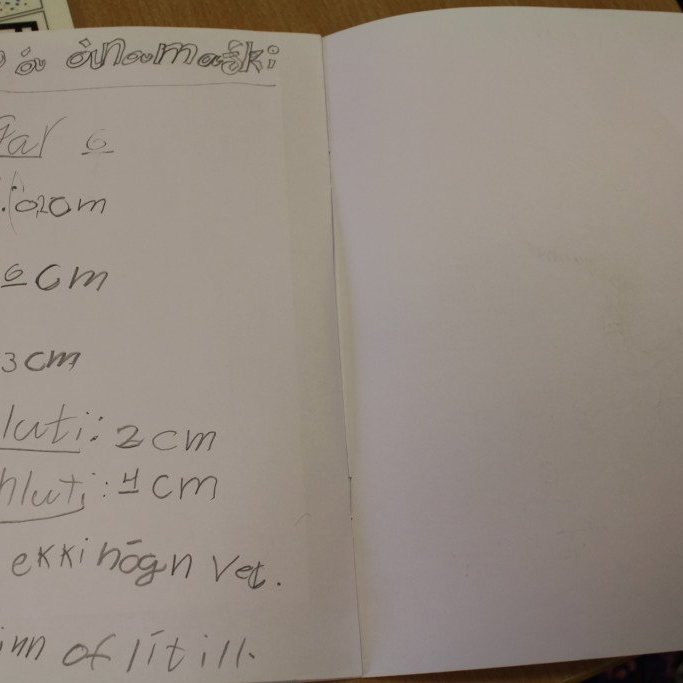 á ánamaðki
6
0,20m
6 cm
3 cm
luti: 2 cm
hluti: 4 cm
ekki nógn vel.
inn of lítill.